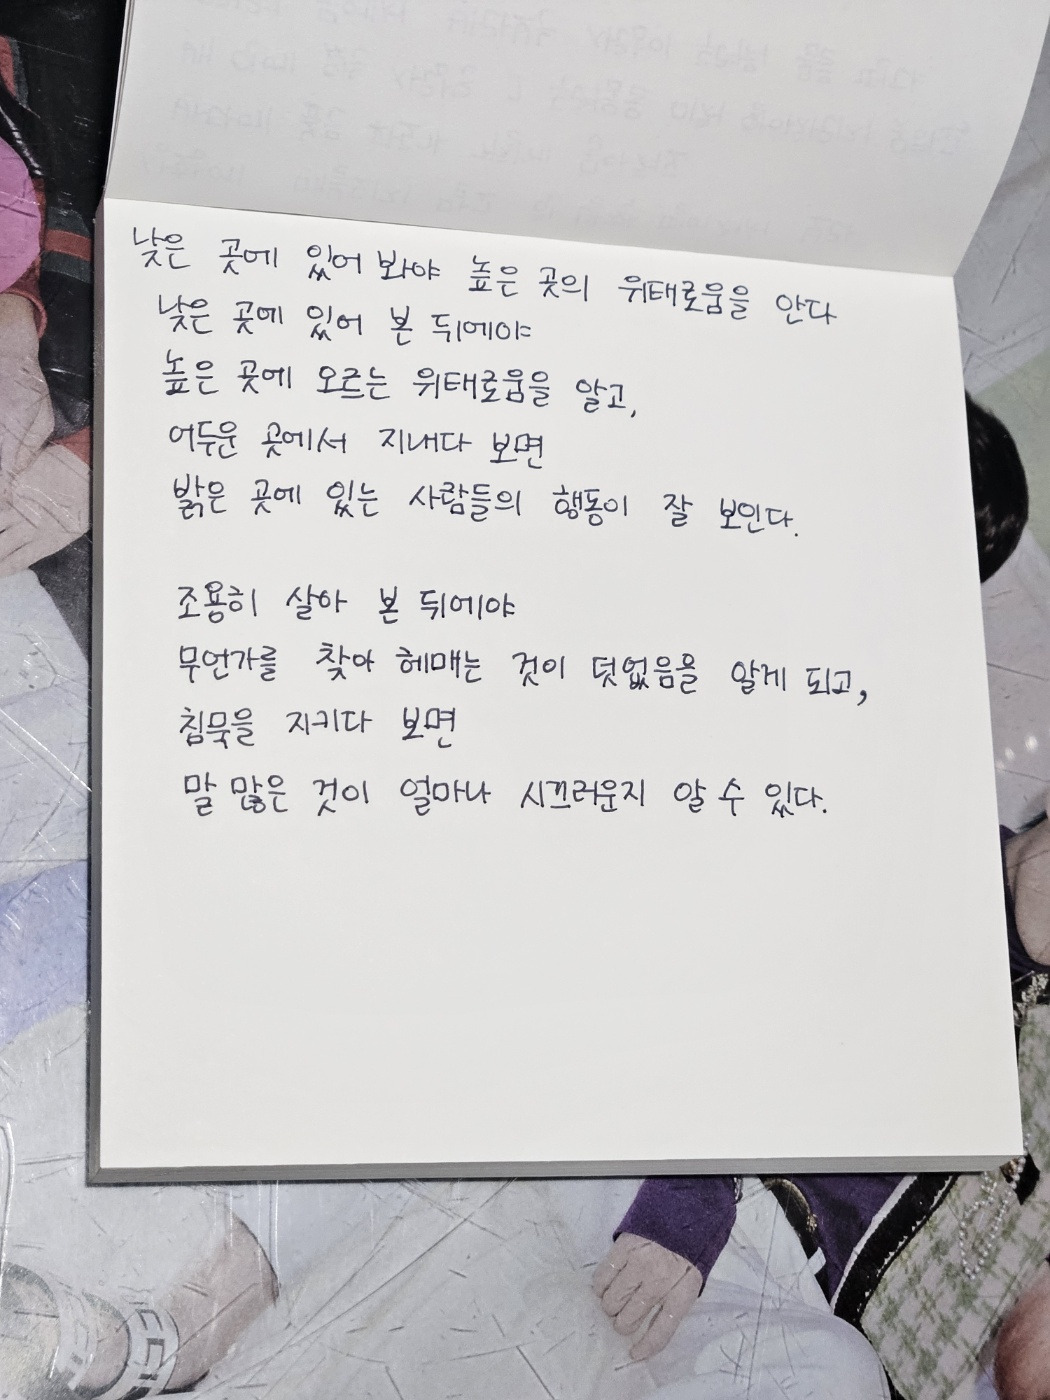 낮은 곳에 있어 봐야 높은 곳의 위태로움을 안다
낮은 곳에 있어 본 뒤에야
높은 곳에 오르는 위태로움을 알고,
어두운 곳에서 지내다 보면
밝은 곳에 있는 사람들의 행동이 잘 보인다.
조용히 살아 본 뒤에야
무언가를 찾아 헤매는 것이 덧없음을 알게 되고,
침묵을 지키다 보면
말 많은 것이 얼마나 시끄러운지 알 수 있다.